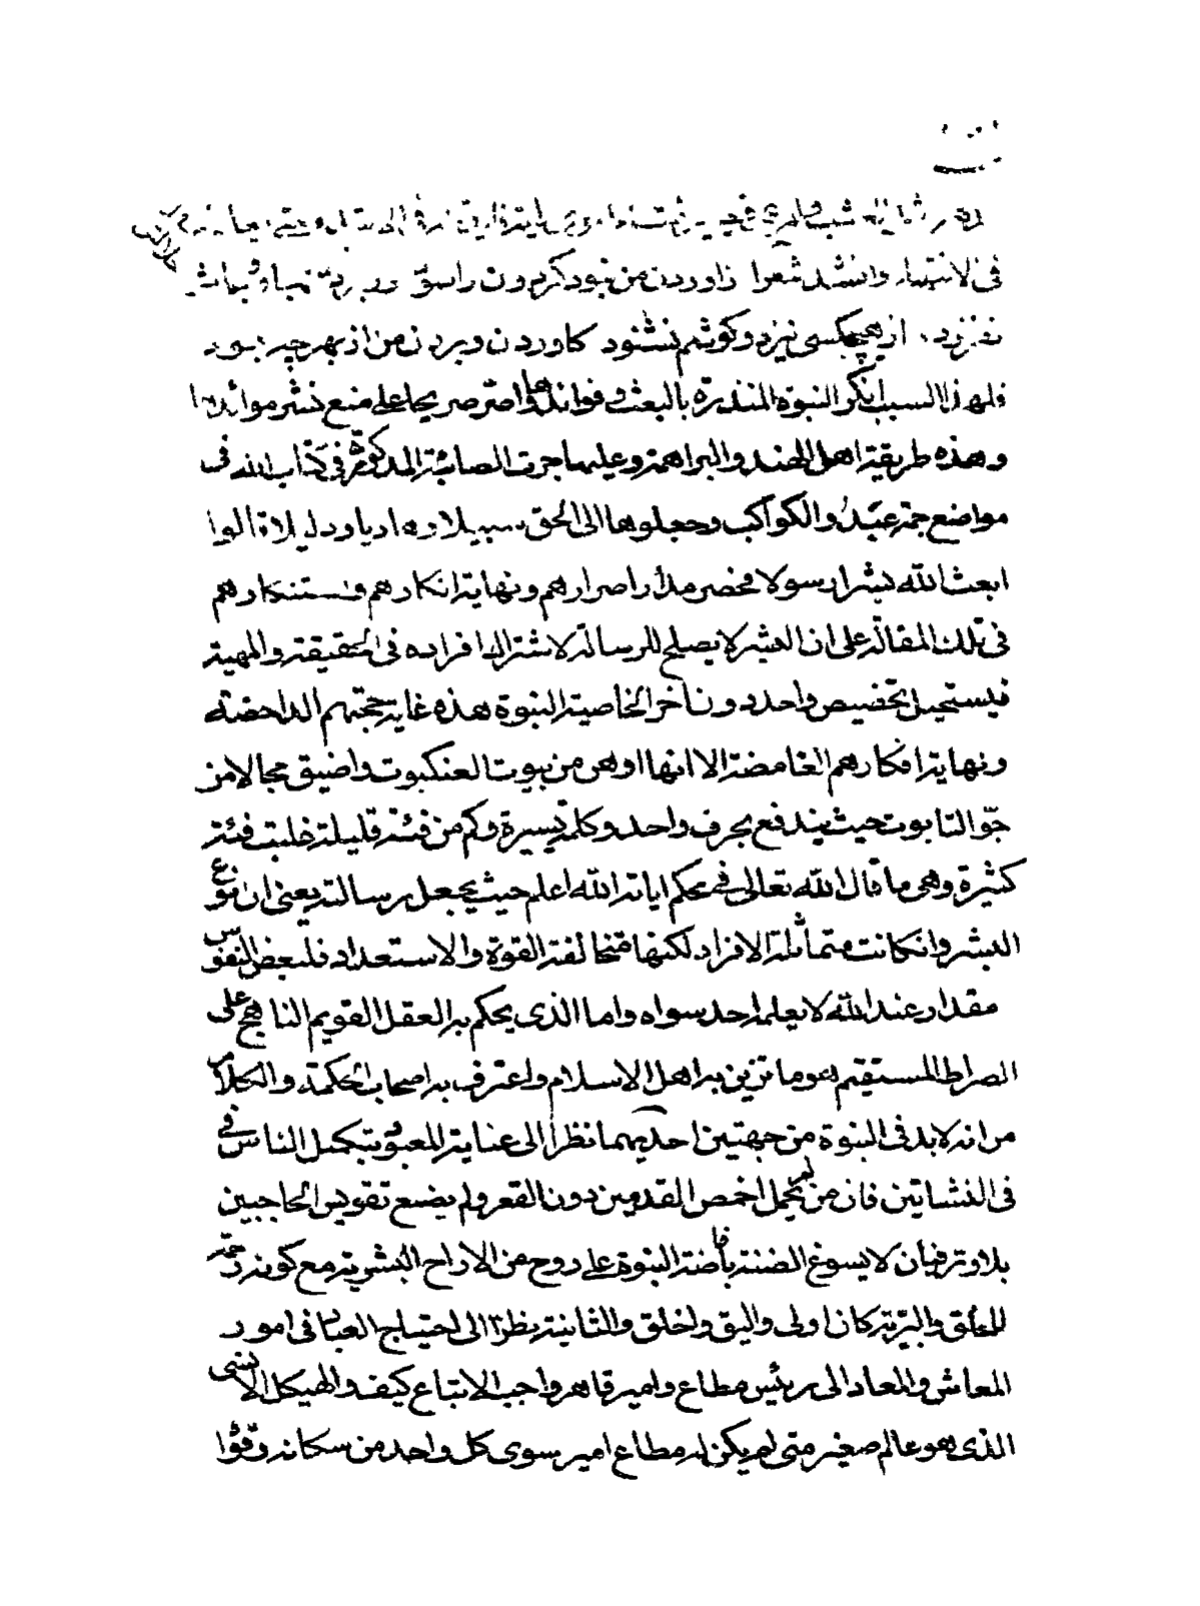 في الانتهاء وانشد شعرا زاوردن من نبود کردون را سود
از هیچکسی نیزد وکوشم نشنود کاوردن وبردن من از بهر چه بود
فلهذا السبب انكر النبوة المنذرة بالبعث وفوائدها واصر صريحا على منع نشر موائدها
وهذه طريقة اهل الهند والبراهمة وعليها جرت الصابئة المذكورة في كتاب الله في
مواضع جمة عبدوا الكواكب وجعلوها الى الحق سبيلا وهاديا ودليلا قالوا
ابعث الله بشرا رسولا فحصر مدار اصرارهم ونهاية انكارهم واستنكارهم
في تلك المقالة على ان البشر لا يصلح للرسالة لاشتراك افراده في الحقيقة والمهية
فيستحيل تخصيص واحد دون آخر الخاصية النبوة هذه غاية حجتهم الداحضة
ونهاية افكارهم الغامضة الا انها اوهن من بيوت العنكبوت واضيق مجالا من
جو التابوت حيث يندفع بحرف واحد وكلمة يسيرة وكم من فئة قليلة غلبت فئة
كثيرة وهي ما قال الله تعالى في محكم اياته الله اعلم حيث يجعل رسالته يعني ان نوع
البشر وان كانت متماثلة الافراد لكنها متخالفة القوة والاستعداد فلبعض النفوس
مقدار عند الله لا يعلمه احد سواه واما الذي يحكم به العقل القويم الناهج على
الصراط المستقيم هو ما تزين به اهل الاسلام واعترف به اصحاب الحكمة والكلام
من انه لا بد في النبوة من جهتين احديهما نظرا الى عناية المعبود بتكميل الناس في
في النشاتين فان من لم يحمل اخمص القدمين دون القعر ولم يضع تقويس الحاجبين
بلا وتر فبأن لا يسوغ الضنة بافاضة النبوة على روح من الارواح البشرية مع كونه رحمة
للخلق والبرية كان اولى واليق واخلق والثانية نظرا الى احتياج العباد في امور
المعاش والمعاد الى رئيس مطاع وامير قاهر واجب الاتباع كيف والهيكل الانسى
الذي هو عالم صغير متى لم يكن له مطاع امير سوى كل واحد من سكانه